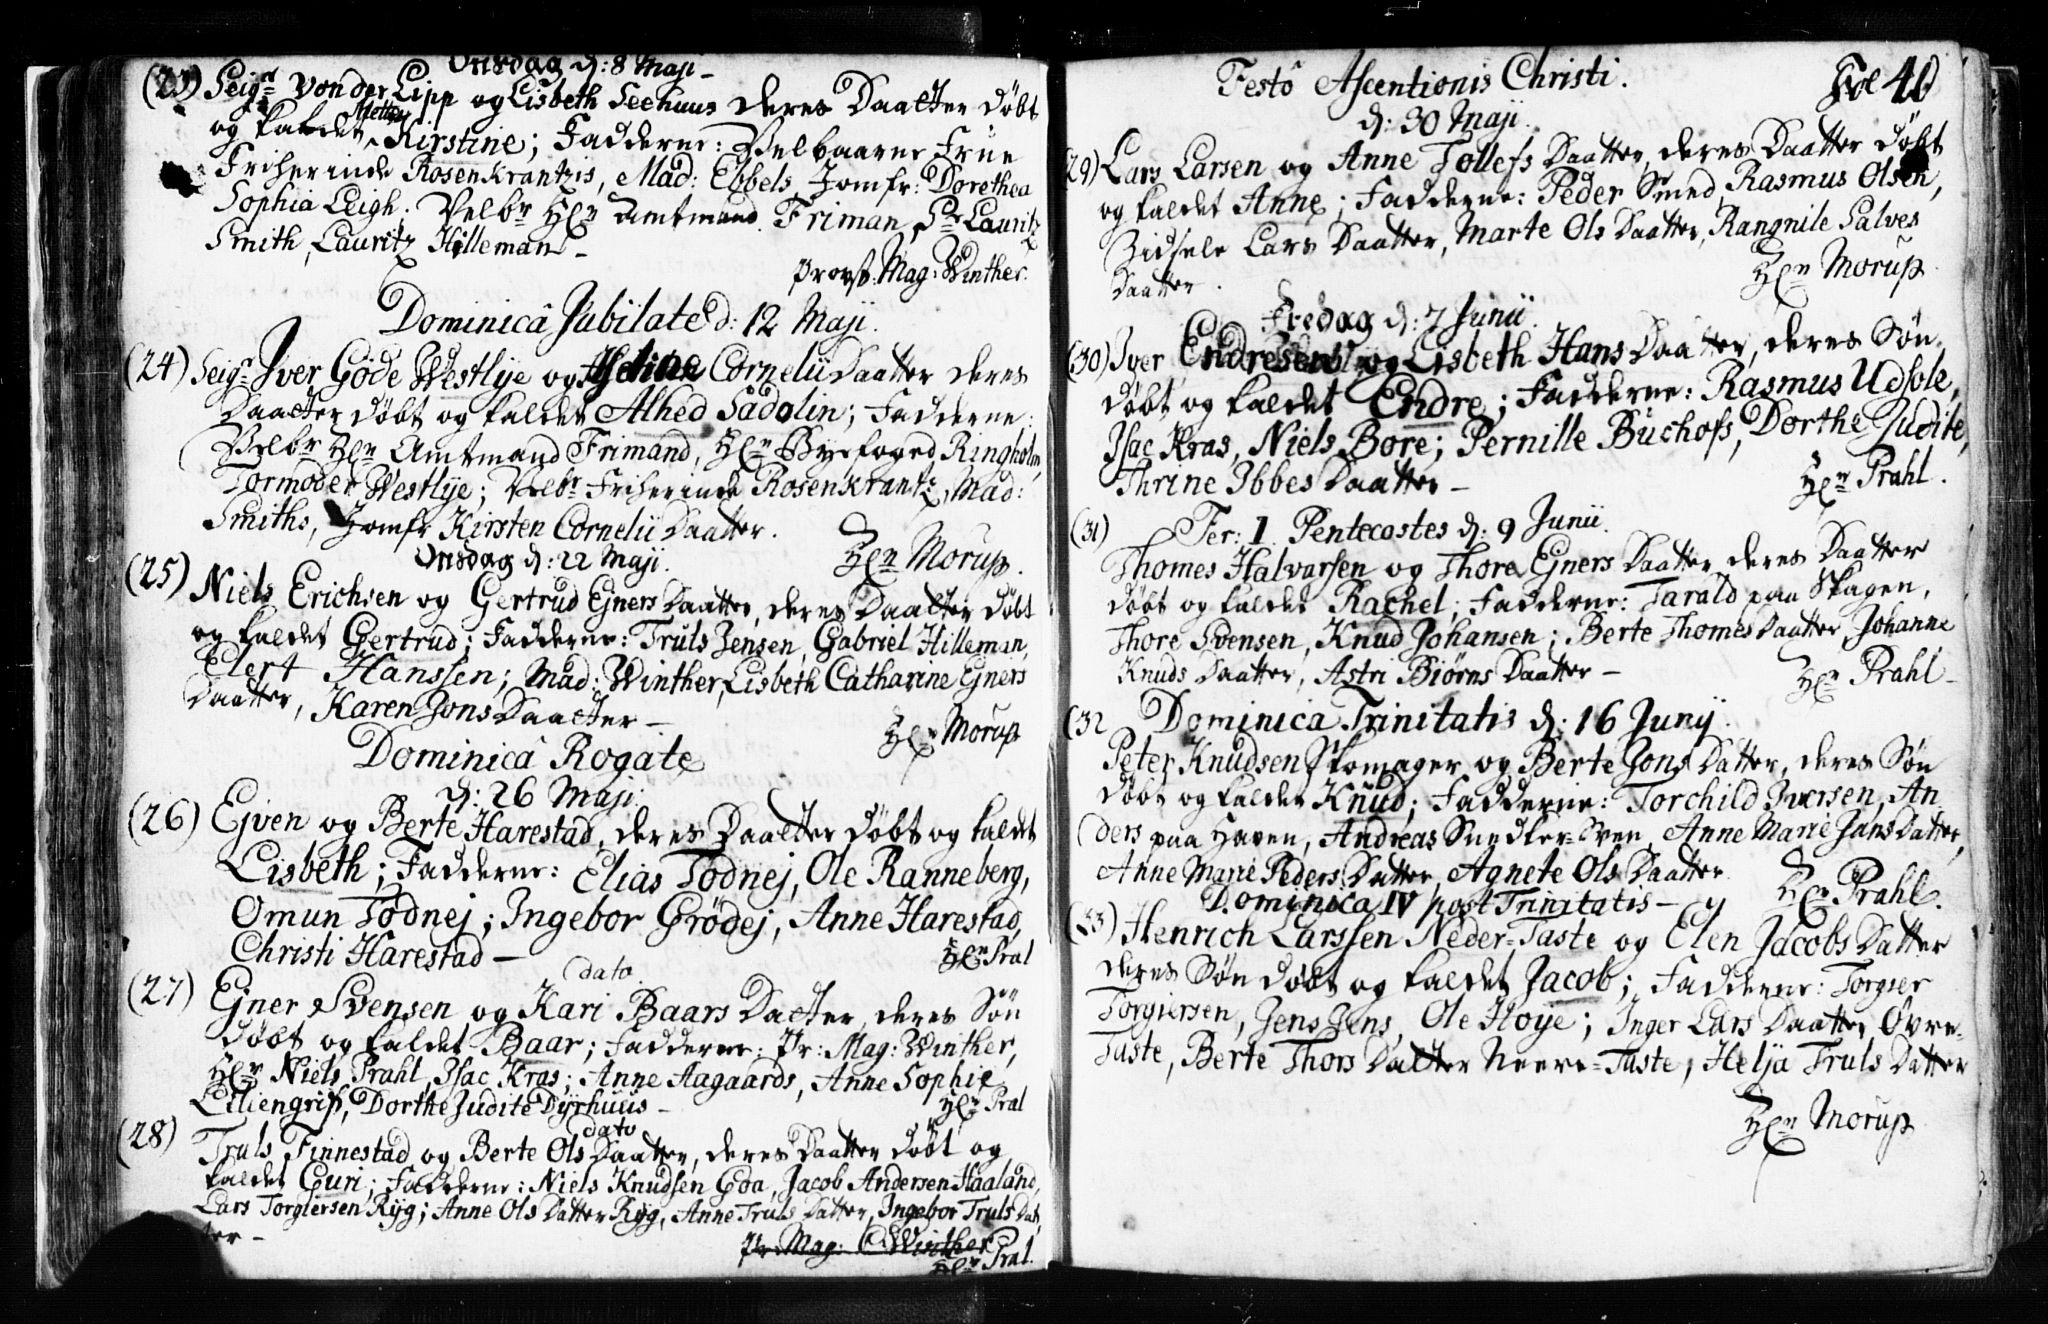 Onsdag d: 8 Maji
(23) Seigr Von der Lipp og Lisbeth Seehuus deres Daatter döbt
Mette
og kaldet Kirstine; Fadderne: Velbaarne Frue
Friherinde Rosenkrantzis, Mad: Ebbels, Jomfr: Dorethea
Sophia Leigh. Velbr Hr Amtmand Friman, Sr Lauritz
Smith, Lauritz Hilleman
Provst Mag: Winther.
Dominicâ Jubilate d: 12 Maji.
(24) Seigr Iver Göde Westlye og Corneliidaatter deres
Daatter döbt og kaldet Alhed Sadolin; Fadderne:
Velbr Hr Amtmand Frimand, Hr Byefoged Ringholm
Tormoder Westlye; Velbr Friherinde Rosenkrantz, Mad:
Smiths, Jomfr Kirsten Cornelii Daatter.
Hr Morup.
Onsdag d: 22 Maji.
(25) Niels Erichsen og Gertrud Ejners Daatter, deres Daatter döbt
og kaldet Gertrud; Fadderne: Truls Jensen, Gabriel Hilleman,
Elert Hanssen; Mad: Winther, Lisbeth Catharine Ejners
Daatter, Karen Jons Daatter
Hr Morup
Dominicâ Rogate
d: 26 Maji
(26) Ejven og Berte Harestad, deres Daatter döbt og kaldet
Lisbeth; Fadderne: Elias Tödnej, Ole Ranneberg,
Omun Tödnej; Ingebor Grödej, Anne Harestad,
Christi Harestad —
Hr Pral
dato
(27) Ejner Svensen og Kari Baars Datter, deres Sön
döbt og kaldet Baar; Fadderne: Pr: Mag: Winther,
Hr Niels Prahl, Isac Kras; Anne Aagaards, Anne Sophie
Liliengrip, Dorthe Judite Dyrhuus —
Hr Pral
dato
(28) Truls Finnestad og Berte Ols Daatter, deres Daatter döbt og
kaldet Guri; Fadderne: Niels Knudsen Goa, Jacob Andersen Haaland,
Lars Torgiersen Ryg; Anne Ols Datter Ryg, Anne Truls Datter, Ingebor Truls Dat
ter —
Pr Mag: C Winther
Hr Pral.
Festô Ascentionis Christi.
Fol 40
d: 30 Maji.
(29) Lars Larsen og Anne Tollefs Daatter, deres Daatter döbt
og kaldet Anne; Fadderne: Peder Smed, Rasmus Olsen,
Zidsele Lars Daatter, Marte Ols Daatter, Rangnile Salves
Daatter.
Hr Morup
Fredag d: 7 Junii.
(30) Iver Endresen og Lisbeth Hans Daatter, deres Sön
döbt og kaldet Endre; Fadderne: Rasmus Udsole,
Isac Kras, Niels Bore; Pernille Buchofs, Dorthe Judite,
Thrine Ibbes Daatter —
Hr Prahl.
(31) Fer: 1. Pentecostes d: 9 Junii.
Thomes Halvarsen og Thore Ejners Daatter, deres Daatter
döbt og kaldet Rachel; Fadderne: Tarald paa Skagen,
Thore Svensen, Knud Johansen; Berte Thomes Daatter, Johanne
Knuds Daatter, Astri Biörns Daatter —
Hr Prahl
(32 Dominica Trinitatis d: 16 Junij.
Peter Knudsen Skomager og Berte Jons Datter, deres Sön
döbt og kaldet Knud; Fadderne: Torchild Iversen, An
ders paa Haven, Andreas Snedker-Sven, Anne Marie Jans Datter,
Anne Marie Peders Datter, Agnete Ols Daatter.
Hr Prahl.
Dominica IV post Trinitatis —
(33) Henrich Larssen Neder-Taste og Elen Jacobs Datter
deres Sön döbt og kaldet Jacob; Fadderne: Torgier
Torgiersen, Jens Jens, Ole Hoye; Inger Lars Daatter Övre-
Taste, Berte Thors Datter Neere-Taste, Helja Truls Datter
Hr Morup